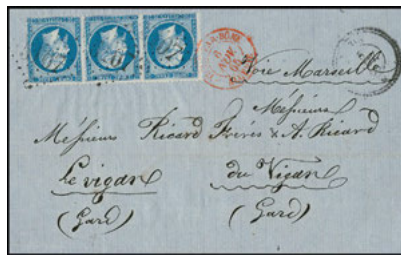 Voie Marseille
Messieurs
Messieurs Ricard Frères & A. Ricard
Le Vigan du Vigan
(Gard) (Gard)